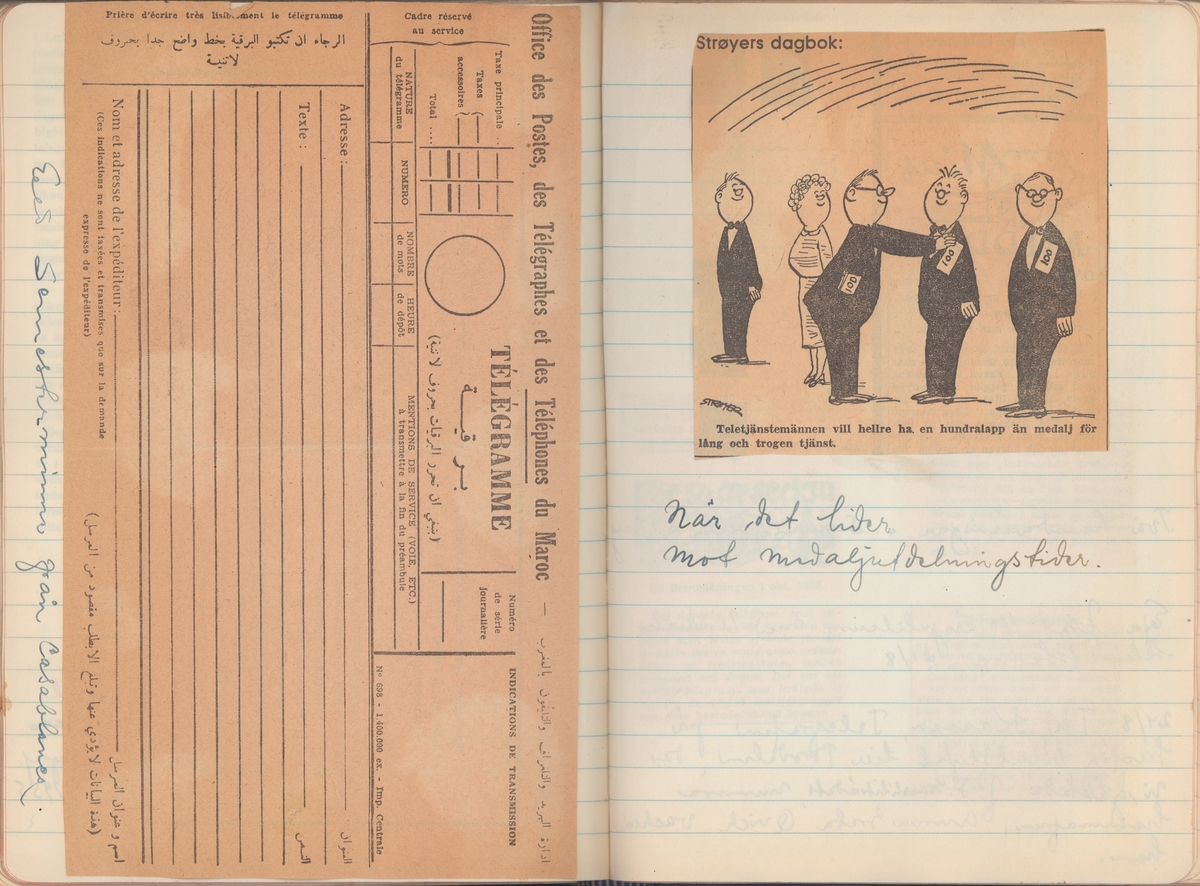 Prière d'écrire très lisiblement le télégramme
الرجاء ان تكتبو البرقية بخط واضح جدا بحروف
لاتنية
Office des Postes, des Télégraphes et des Téléphones du Maroc — ادارة البريد والتلغراف والتليفون بالمغرب
Cadre réservé
au service
Taxe principale ..
Taxes
accessoires
Total ....
TÉLÉGRAMME
برقية
(ينبغي ان تحرر البرقيات بحروف لاتنية)
Numéro
de série
journalière
INDICATIONS DE TRANSMISSION
NATURE
du télégramme
NUMERO
NOMBRE
de mots
HEURE
de dépôt
MENTIONS DE SERVICE (VOIE, ETC.)
à transmettre à la fin du préambule
N° 698 - 1.400.000 ex. - Imp. Centrale
Adresse :
العنوان
Texte :
النص
Nom et adresse de l'expéditeur :
اسم و عنوان المرسل
(Ces indications ne sont taxées et transmises que sur la demande
expresse de l'expéditeur)
(هذه البيانات لا يؤدي عنها وتبلغ الا بطلب مقصود من المرسل)
Ett Semesterminne från Casablanca.
Strøyers dagbok:
100
100
100
STRØYER
Teletjänstemännen vill hellre ha en hundralapp än medalj för
lång och trogen tjänst.
När det lider
mot medaljutdelningstider.